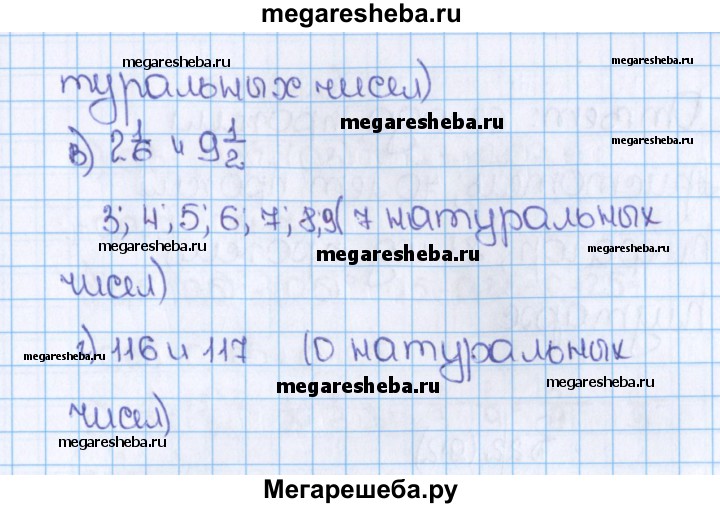 megaresheba.ru
megaresheba.ru
megaresheba.ru
туральных чисел)
megaresheba.ru
в) 2 1/6 и 9 1/2
megaresheba.ru
3; 4; 5; 6; 7; 8; 9( 7 натуральных
megaresheba.ru
megaresheba.ru
megaresheba.ru
чисел)
г) 116 и 117 (0 натуральных
megaresheba.ru
megaresheba.ru
megaresheba.ru
чисел)
megaresheba.ru
megaresheba.ru
Мегарешеба.ру